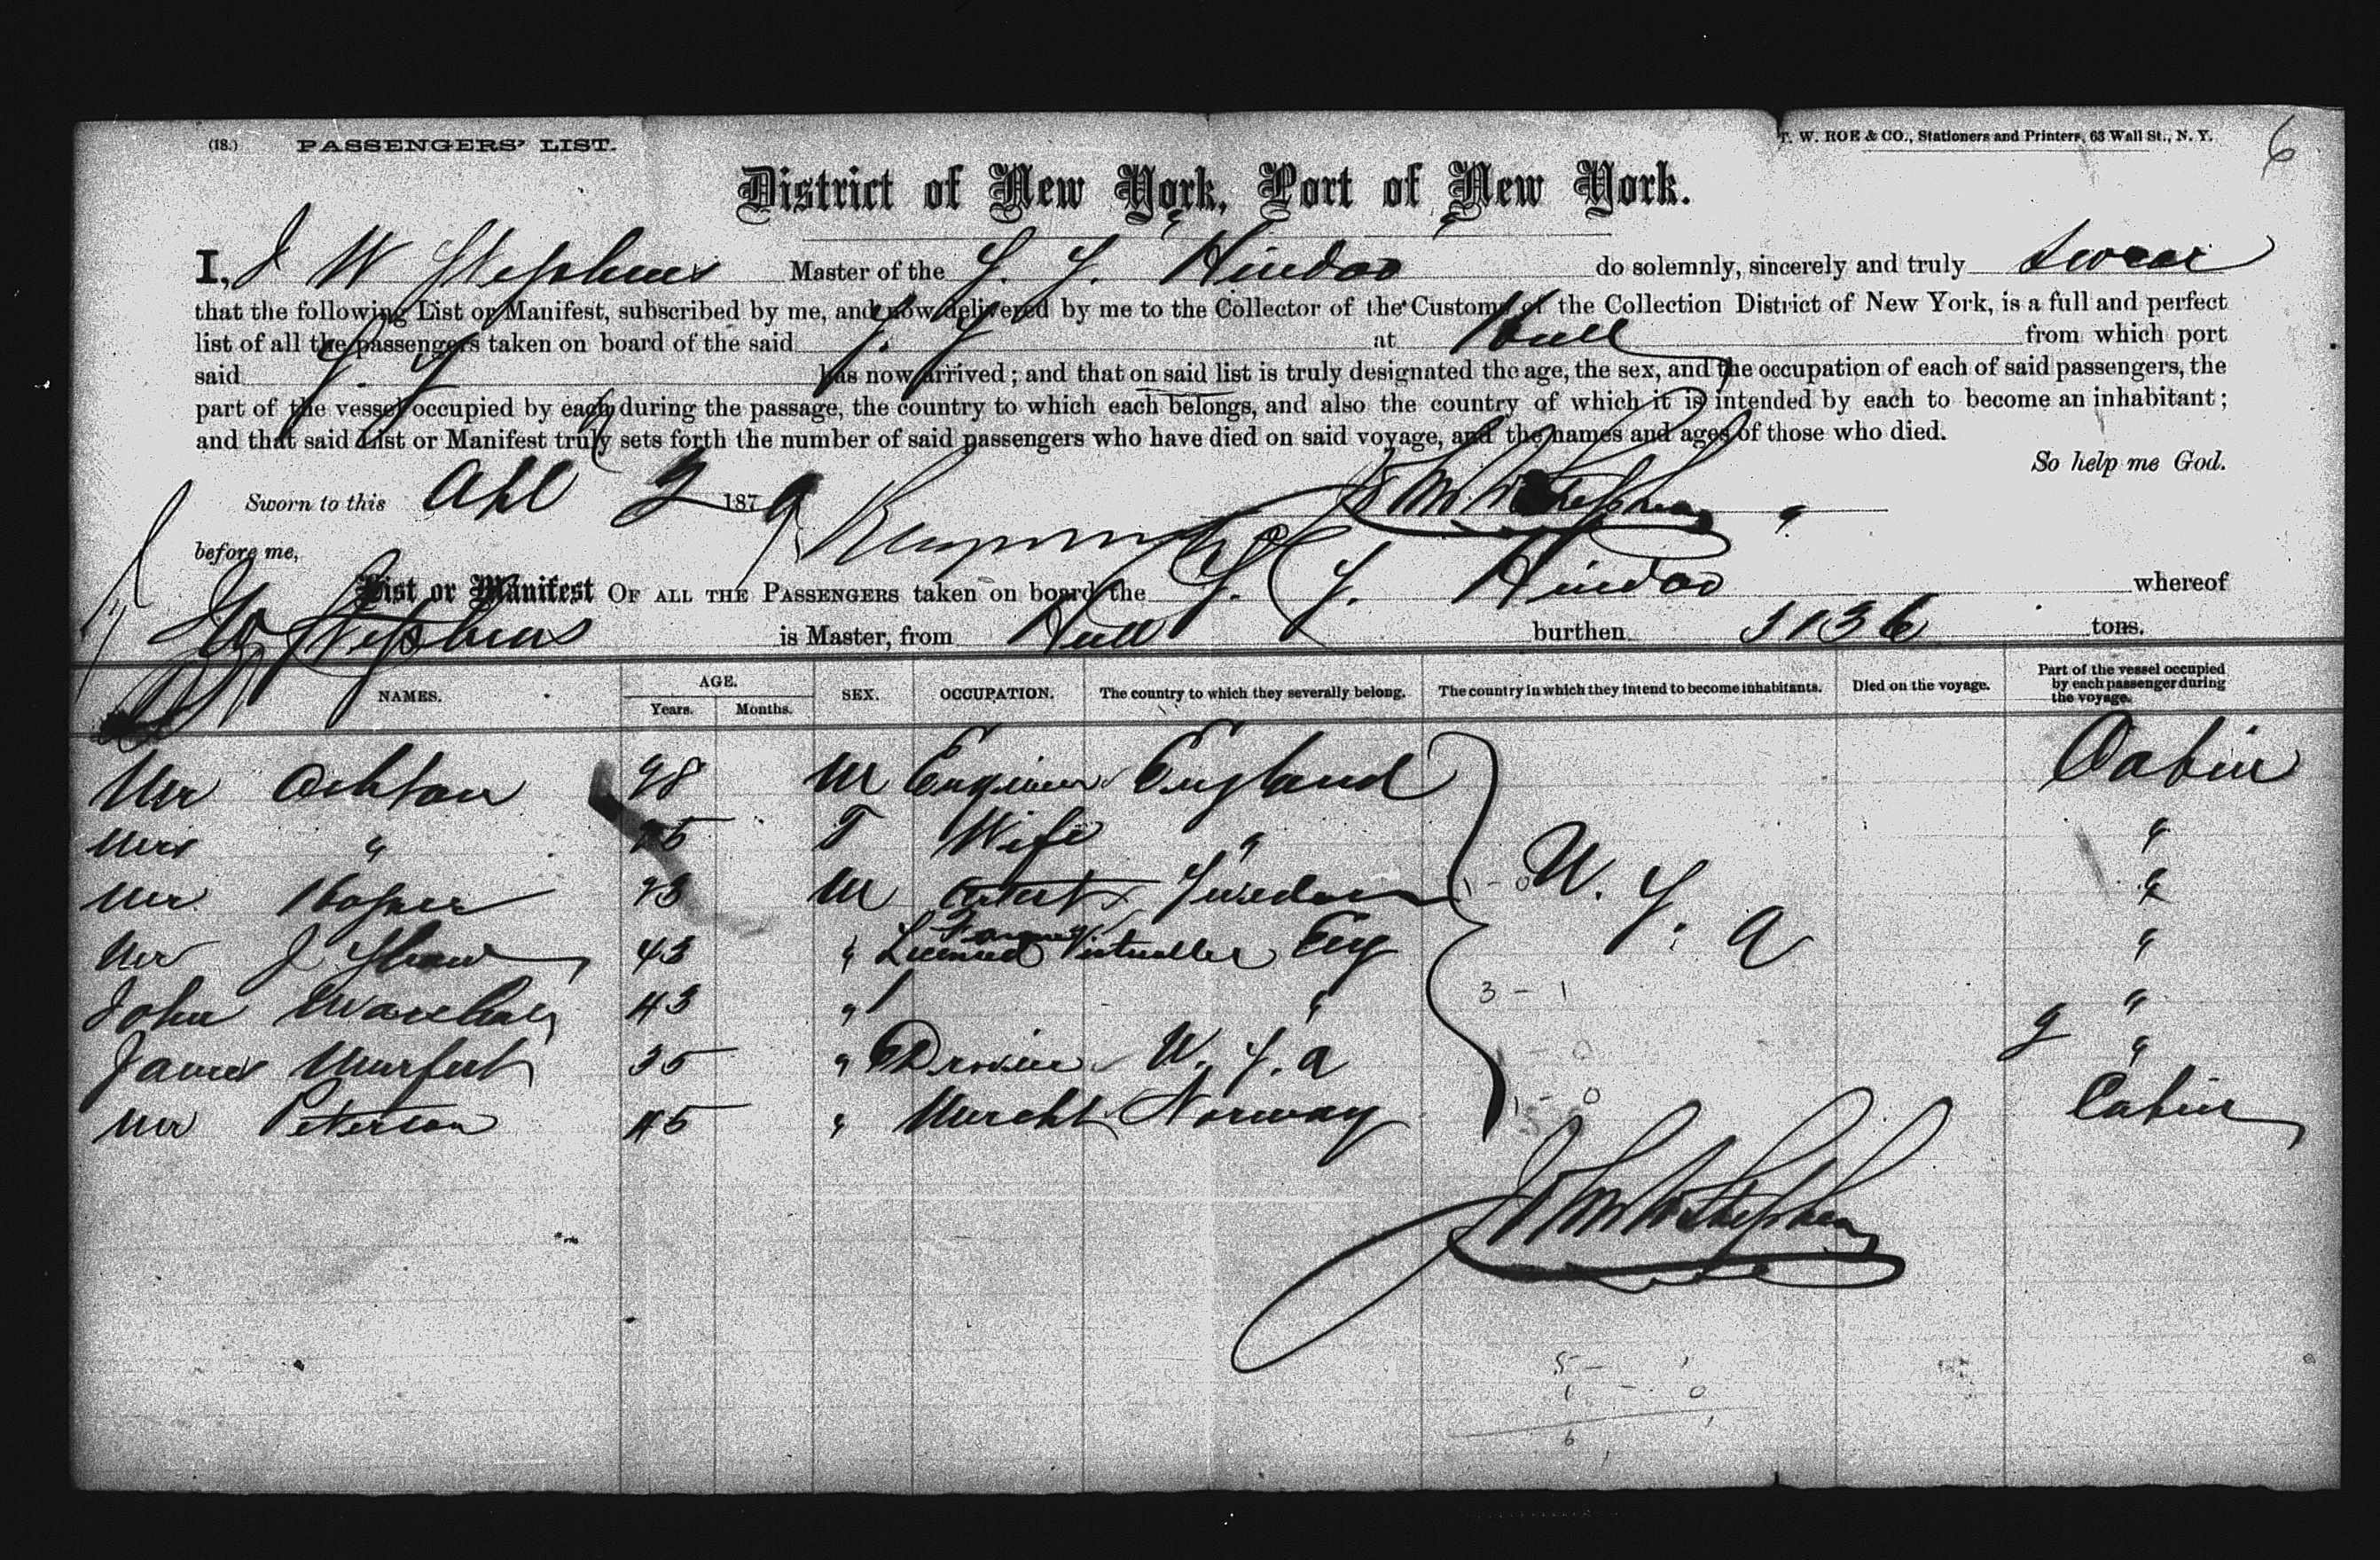 (18.) PASSENGERS' LIST. T. W. ROE & CO., Stationers and Printers, 63 Wall St., N. Y. 6
District of New York, Port of New York.
I, J W Stephens Master of the S. S. Hindoo do solemnly, sincerely and truly swear
that the following List or Manifest, subscribed by me, and now delivered by me to the Collector of the Customs of the Collection District of New York, is a full and perfect
list of all the passengers taken on board of the said S. S. at Hull from which port
said S. S. has now arrived; and that on said list is truly designated the age, the sex, and the occupation of each of said passengers, the
part of the vessel occupied by each during the passage, the country to which each belongs, and also the country of which it is intended by each to become an inhabitant;
and that said List or Manifest truly sets forth the number of said passengers who have died on said voyage, and the names and ages of those who died.
So help me God.
Sworn to this Apl 2 1879
before me,
List or Manifest OF ALL THE PASSENGERS taken on board the S. S. Hindoo whereof
J W Stephens is Master, from Hull burthen 3136 tons.
NAMES. AGE. Years. Months. SEX. OCCUPATION. The country to which they severally belong. The country in which they intend to become inhabitants. Died on the voyage. Part of the vessel occupied by each passenger during the voyage.
Mr Ashton 28 M Engineer England Cabin
Mrs " 25 F Wife " "
Mr 23 M Artist Sweden U. S. A "
Mr J Shaw 43 " Licensed Victualler Eng "
John 43 " " 3 - 1 "
James 35 " Drover U. S. A "
Mr Peterson 45 " Mercht Norway Cabin
5 - 1
1 - 0
6 1